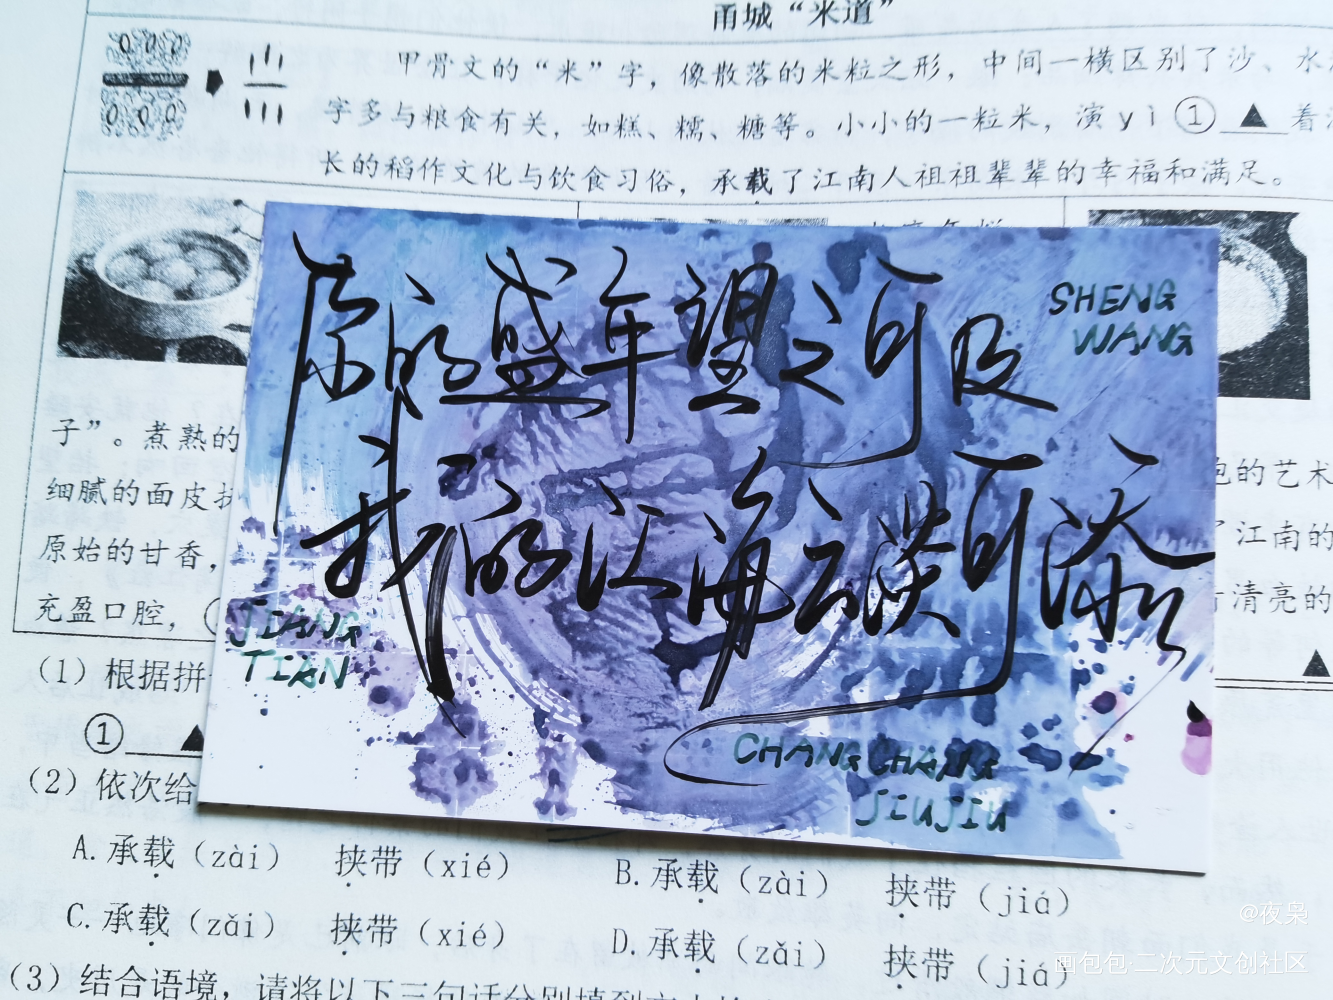 甬城“米道”
甲骨文的“米”字，像散落的米粒之形，中间一横区别了沙、水
字多与粮食有关，如糕、糯、糖等。小小的一粒米，演yì①▲着
长的稻作文化与饮食习俗，承载了江南人祖祖辈辈的幸福和满足。
SHENG
WANG
的盛年望之可及
我的江海云淡可添
JIANG
TIAN
CHANGCHANG
JIUJIU
子”。煮熟的
细腻的面皮
原始的甘香，
充盈口腔，
包的艺术
江南的
清亮的
▲
（1）根据拼
①▲
（2）依次给
A.承载（zài） 挟带（xié） B.承载（zài） 挟带（jiá）
C.承载（zǎi） 挟带（xié） D.承载（zǎi） 挟带（jiá）
（3）结合语境，请将以下三句话分别填到文
@夜枭
画包包·二次元文创社区